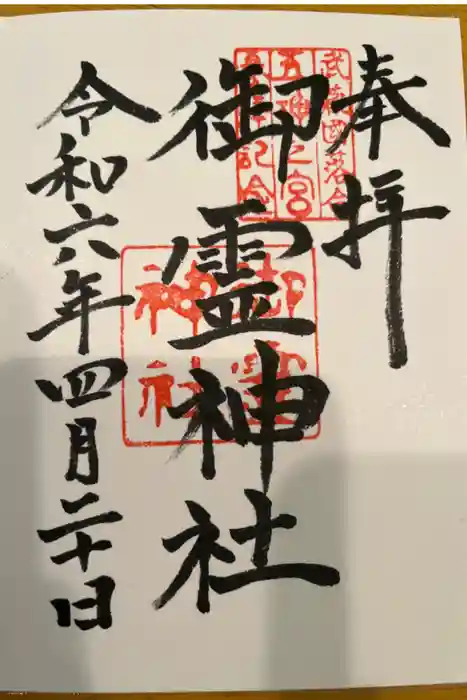 奉拝
武蔵國落合
五霊之宮
参拝記念
御霊神社
御霊
神社
令和六年四月二十日